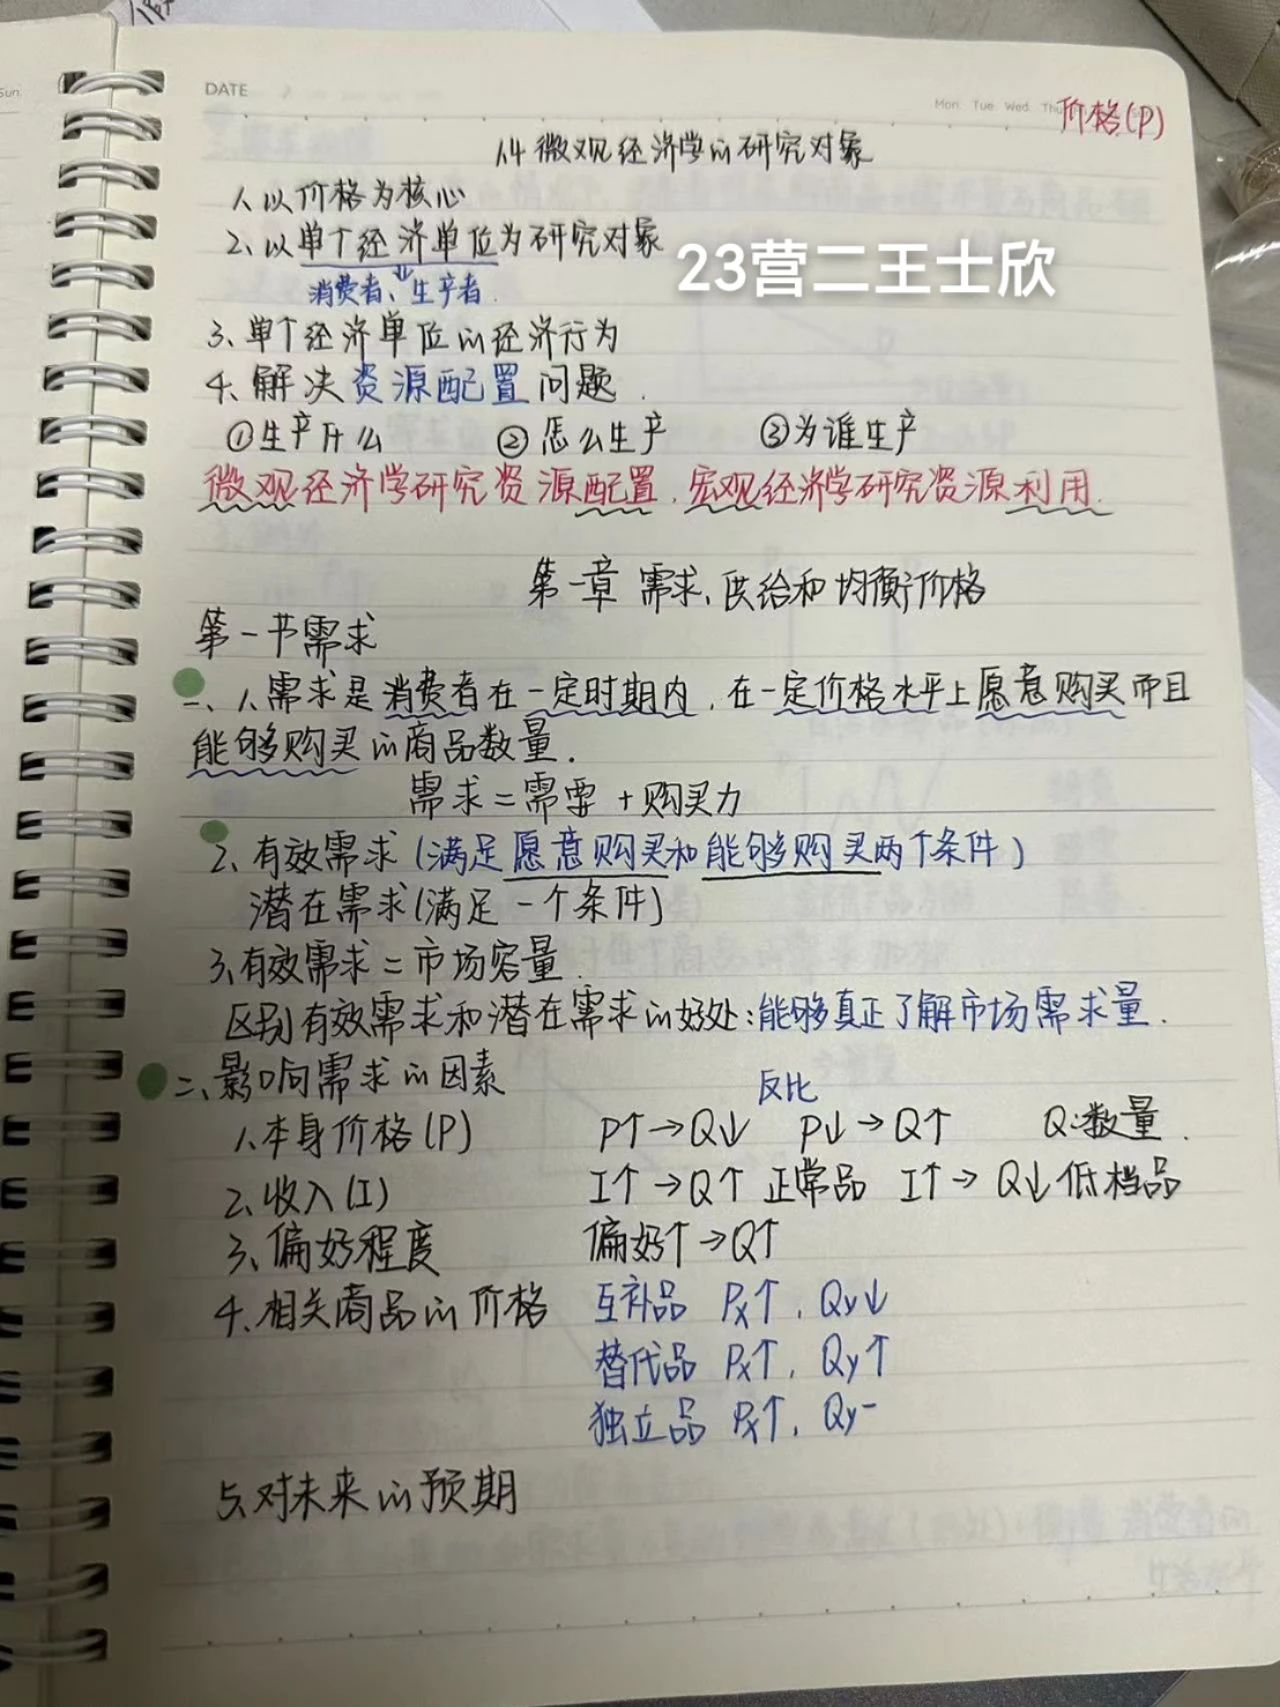 DATE
Mon. Tue. Wed. Thu
价格(P)
1.4 微观经济学的研究对象
1、以价格为核心
2、以单个经济单位为研究对象
消费者、生产者.
23营二王士欣
3、单个经济单位的经济行为
4、解决资源配置问题.
①生产什么 ②怎么生产 ③为谁生产
微观经济学研究资源配置.宏观经济学研究资源利用.
第一章 需求、供给和均衡价格
第一节需求
一、1、需求是消费者在一定时期内,在一定价格水平上愿意购买而且
能够购买的商品数量.
需求=需要+购买力
2、有效需求(满足愿意购买和能够购买两个条件)
潜在需求(满足一个条件)
3、有效需求=市场容量.
区别有效需求和潜在需求的好处:能够真正了解市场需求量.
二、影响需求的因素
反比
1、本身价格(P) P↑→Q↓ P↓→Q↑ Q:数量.
2、收入(I) I↑→Q↑ 正常品 I↑→Q↓低档品
3、偏好程度 偏好↑→Q↑
4、相关商品的价格 互补品 Px↑,Qy↓
替代品 Px↑,Qy↑
独立品 Px↑,Qy-
5、对未来的预期